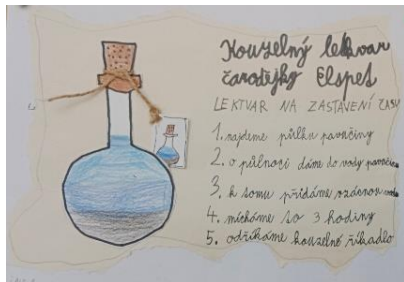 Kouzelný lektvar
čarodějky Elspet
LEKTVAR NA ZASTAVENÍ ČASU
1. najdeme půlku pavučiny
2. o půlnoci dáme do vody pavučinu
3. k tomu přidáme vzácnou
4. mícháme to 3 hodiny
5. odříkáme kouzelné říkadlo